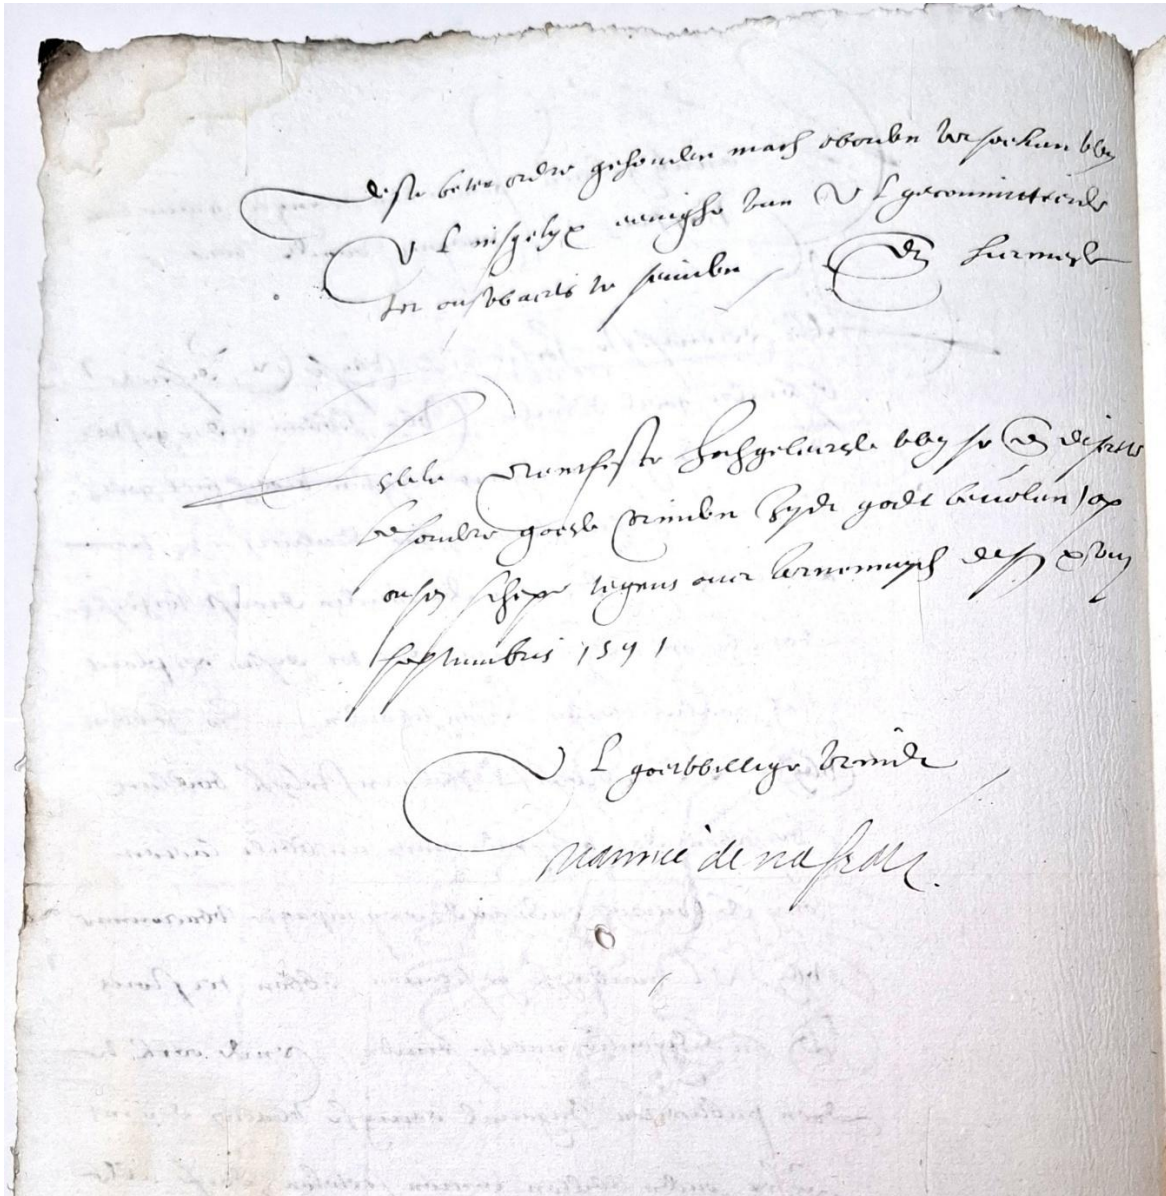 deste beter ordre gehouden mach worden versoeken wy
V L insgelyx eenighe van V L gecommitteerde
ter onswaerts te seinden / En hiermede
Edele Erentfeste hochgeleerde wyse en discrete
besondre goede vrienden Zydt godt bevolen / op
onsen schepe tegens over Arnemuyden dese
septembris 1591
V L goetwillige vriendt
Maurice de nassau.